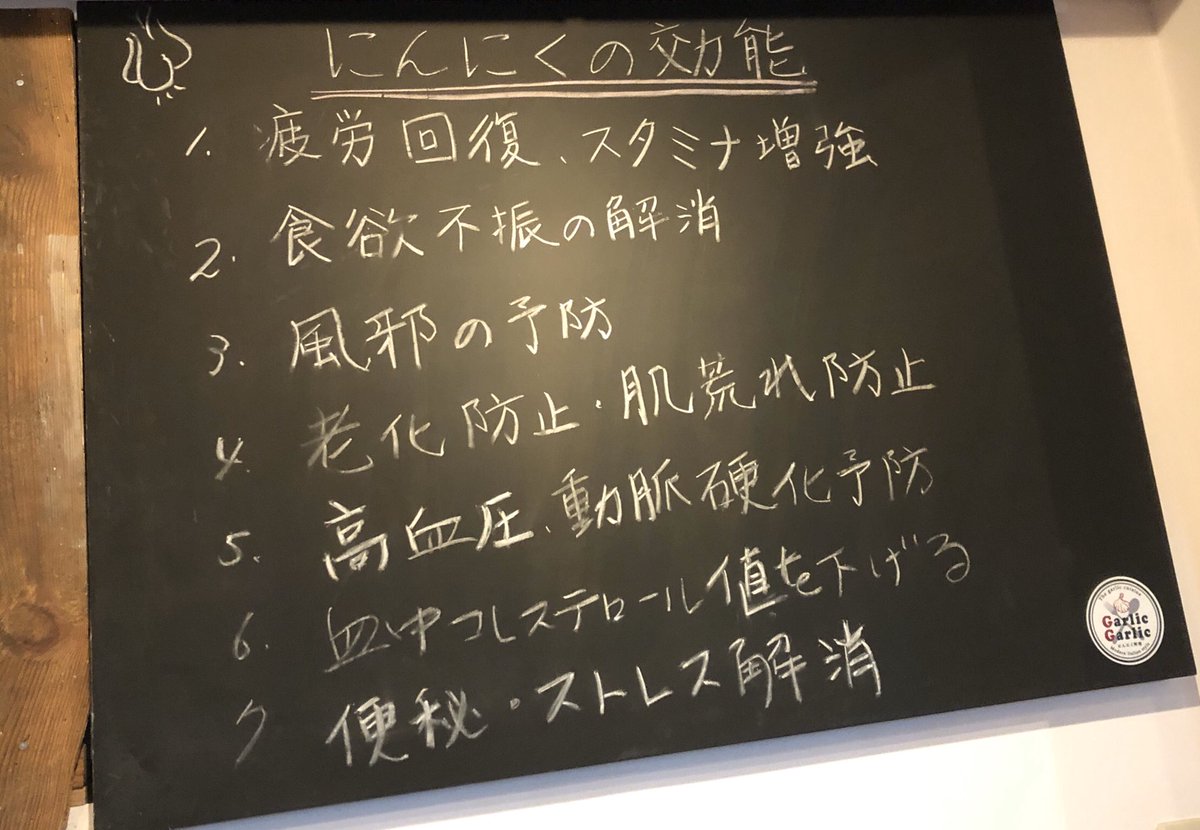 にんにくの効能
1. 疲労回復、スタミナ増強
2. 食欲不振の解消
3. 風邪の予防
4. 老化防止・肌荒れ防止
5. 高血圧、動脈硬化予防
6. 血中コレステロール値を下げる
7 便秘・ストレス解消
The garlic cuisine
Garlic
Garlic